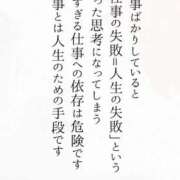 事ばかりしていると
仕事の失敗=人生の失敗」という
った思考になってしまう
すぎる仕事への依存は危険です
事とは人生のための手段です